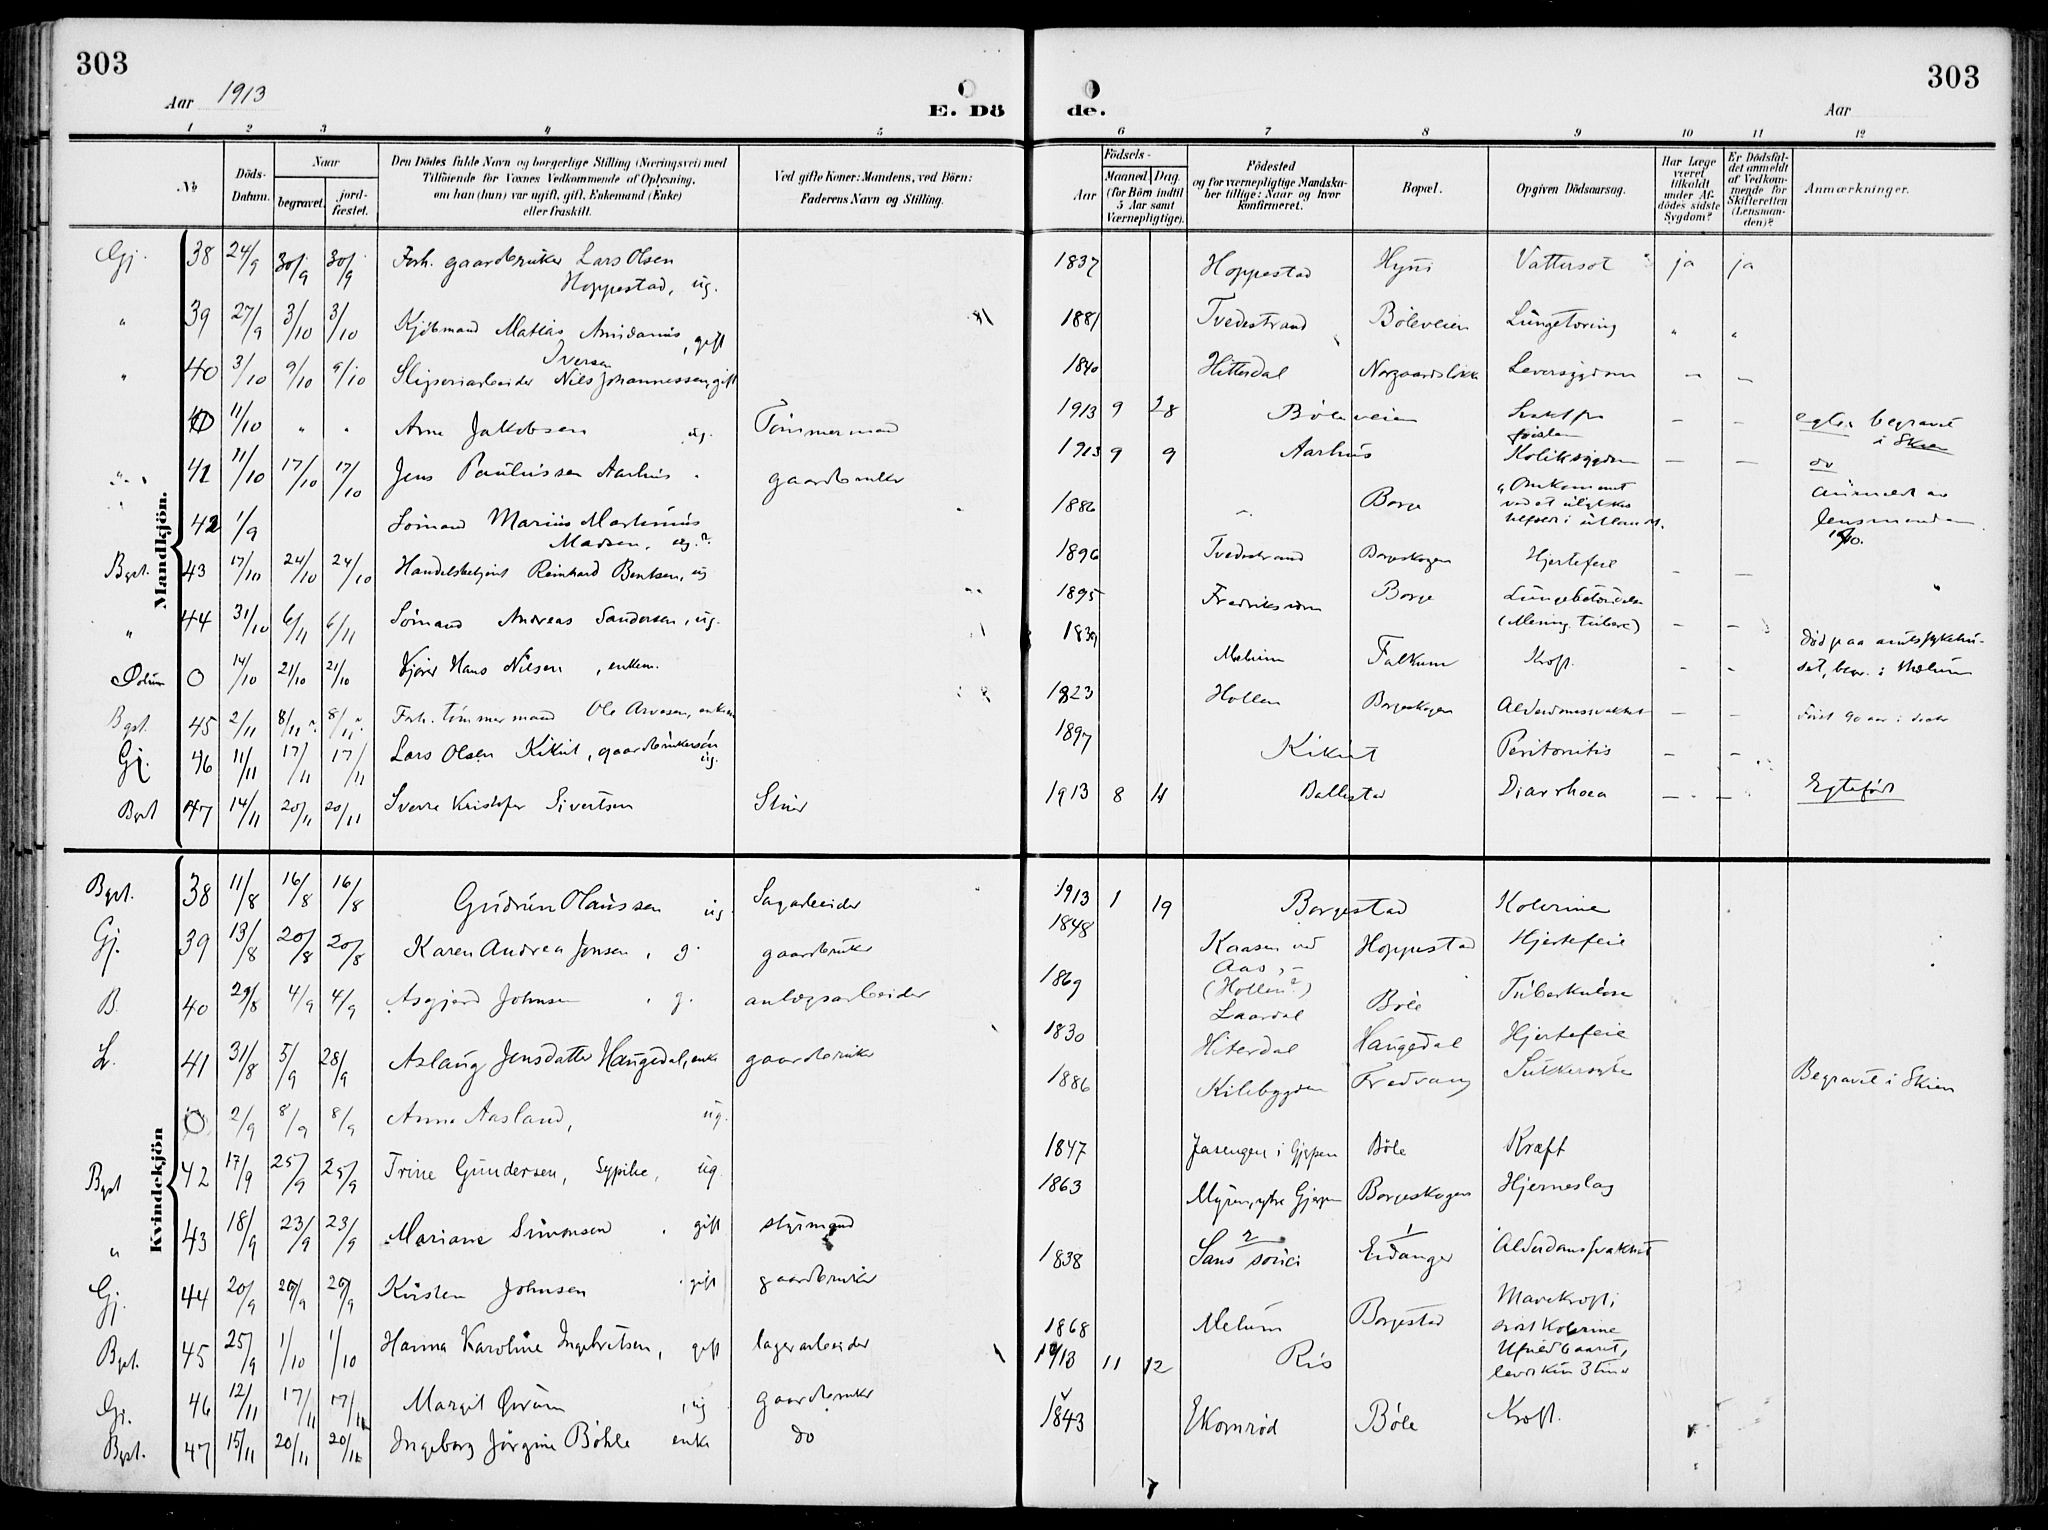 303
303
Aar 1913
E. Dö de.
Aar
1 2 3 4 5 6 7 8 9 10 11 12
No
Döds-Datum.
Naar
begravet.
jord-fæstet.
Den Dödes fulde Navn og borgerlige Stilling (Næringsvei) med
Tilföiende for Voxnes Vedkommende af Oplysning,
om han (hun) var ugift, gift, Enkemand (Enke)
eller fraskilt.
Ved gifte Koner: Mandens, ved Börn:
Faderens Navn og Stilling.
Födsels-
Aar
Maaned. Dag.
(for Börn indtil
5 Aar samt
Værnepligtige).
Födested
og for værnepligtige Mandska-
ber tillige: Naar og hvor
konfirmeret.
Bopæl.
Opgiven Dödsaarsag.
Har Læge
været
tilkaldt
under Af-
dödes sidste
Sygdom?
Er Dödsfal-
det anmeldt
af Vedkom-
mende for
Skifteretten
(Lensman-
den)?
Anmærkninger.
Mandkjön.
Gj. 38 24/9 30/9 30/9 Forh. gaardbruker Lars Olsen Hoppestad, ug. 1837 Hoppestad Hyni Vattersot ja ja
" 39 27/9 3/10 3/10 Kjöbmand Matias Amidanus Iversen, gift 1881 Tvedestrand Böleveien Lungetæring " "
" 40 3/10 9/10 9/10 Sliperiarbeider Nils Johannessen, gift 1840 Hitterdal Norgaardslökka Leversygdom — —
11/10 " " Arne Jakobsen ug. Tömmermand 1913 9 28 Böleveien Svakt fra födslen — — egtef. begravet i Skien
41 11/10 17/10 17/10 Jens Paulussen Aarhus gaardbruker 1913 9 9 Aarhus Koliksygdom — — do
42 1/9 Sömand Marius Martinius Madsen, ug.? 1886 Borge Omkommet ved et ulykkes tilfælde i utlandet. anmeldt av lensmanden 19/10.
Bgst. 43 17/10 24/10 24/10 Handelsbetjent Reinhard Bentsen, ug 1896 Tvedestrand Borgeskogen Hjertefeil — —
" 44 31/10 6/11 6/11 Sömand Andreas Sandersen, ug. 1895 Fredriksværn Borge Lungebetændelse (Mening. tuberc) — —
Solum 0 14/10 21/10 21/10 Kjörer Hans Nilsen, enkem. 1839 Melum Falkum Kræft. - - Död paa amtssykehu-set, begr. i Melum
Bgst. 45 2/11 8/11? 8/11? Forh. tömmermand Ole Arvesen, enkem 1823 Hollen Borgeskogen Alderdomssvakhet — — Först 90 aar i
Gj. 46 11/11 17/11 17/11 Lars Olsen Kikut, gaardbrukersön ug. 1897 Kikut Peritonitis — —
Bgst 47 14/11 20/11 20/11 Sverre Kristofer Sivertsen Stuer 1913 8 14 Ballestad Diarrhoea — — Egtefödt
Kvindekjön
Bgst. 38 11/8 16/8 16/8 Gudrun Olaussen ug. Sagarbeider 1913 1 19 Borgestad Kolerine
Gj. 39 13/8 20/8 20/8 Karen Andrea Jensen, g. gaardbruker 1848 Kaasen ved Aas, (Hollen?) Hoppestad Hjertefeil
B. 40 29/8 4/9 4/9 Asgjerd Johnsen, g. anlægsarbeider 1869 Laardal Böle Tuberkulose
L. 41 31/8 5/9 28/9 Aslaug Jensdatter Haugedal, enke gaardbruker 1830 Hiterdal Haugedal Hjertefeil
0 2/9 8/9 8/9 Anna Aasland, ug. 1886 Kilebygden Fredvang Sukkersyke Begravet i Skien
Bgst 42 17/9 25/9 25/9 Trine Gundersen, Sypike, ug. 1847 Jasengen i Gjerpen Böle Kræft
" 43 18/9 23/9 23/9 Mariane Simonsen, gift styrmand 1863 Myren, ytre Gjerpen Borgeskogen Hjerneslag
Gj. 44 20/9 26/9 26/9 Kirsten Johnsen, gift gaardbruker 1838 Sans souci Eidanger Alderdomssvakhet
Bgst. 45 25/9 1/10 1/10 Hanna Karoline Ingebretsen, gift lagerarbeider 1868 Melum Borgestad Mavekræft, sist Kolerine
Gj. 46 12/11 17/11 17/11 Margit ug gaardbruker 1913 11 12 Ris Ufuldbaaret, levet kun 3 timer
Bgst. 47 15/11 20/11 20/11 Ingeborg Jörgine Böhle enke do 1843 Ekornröd Böle Kræft.